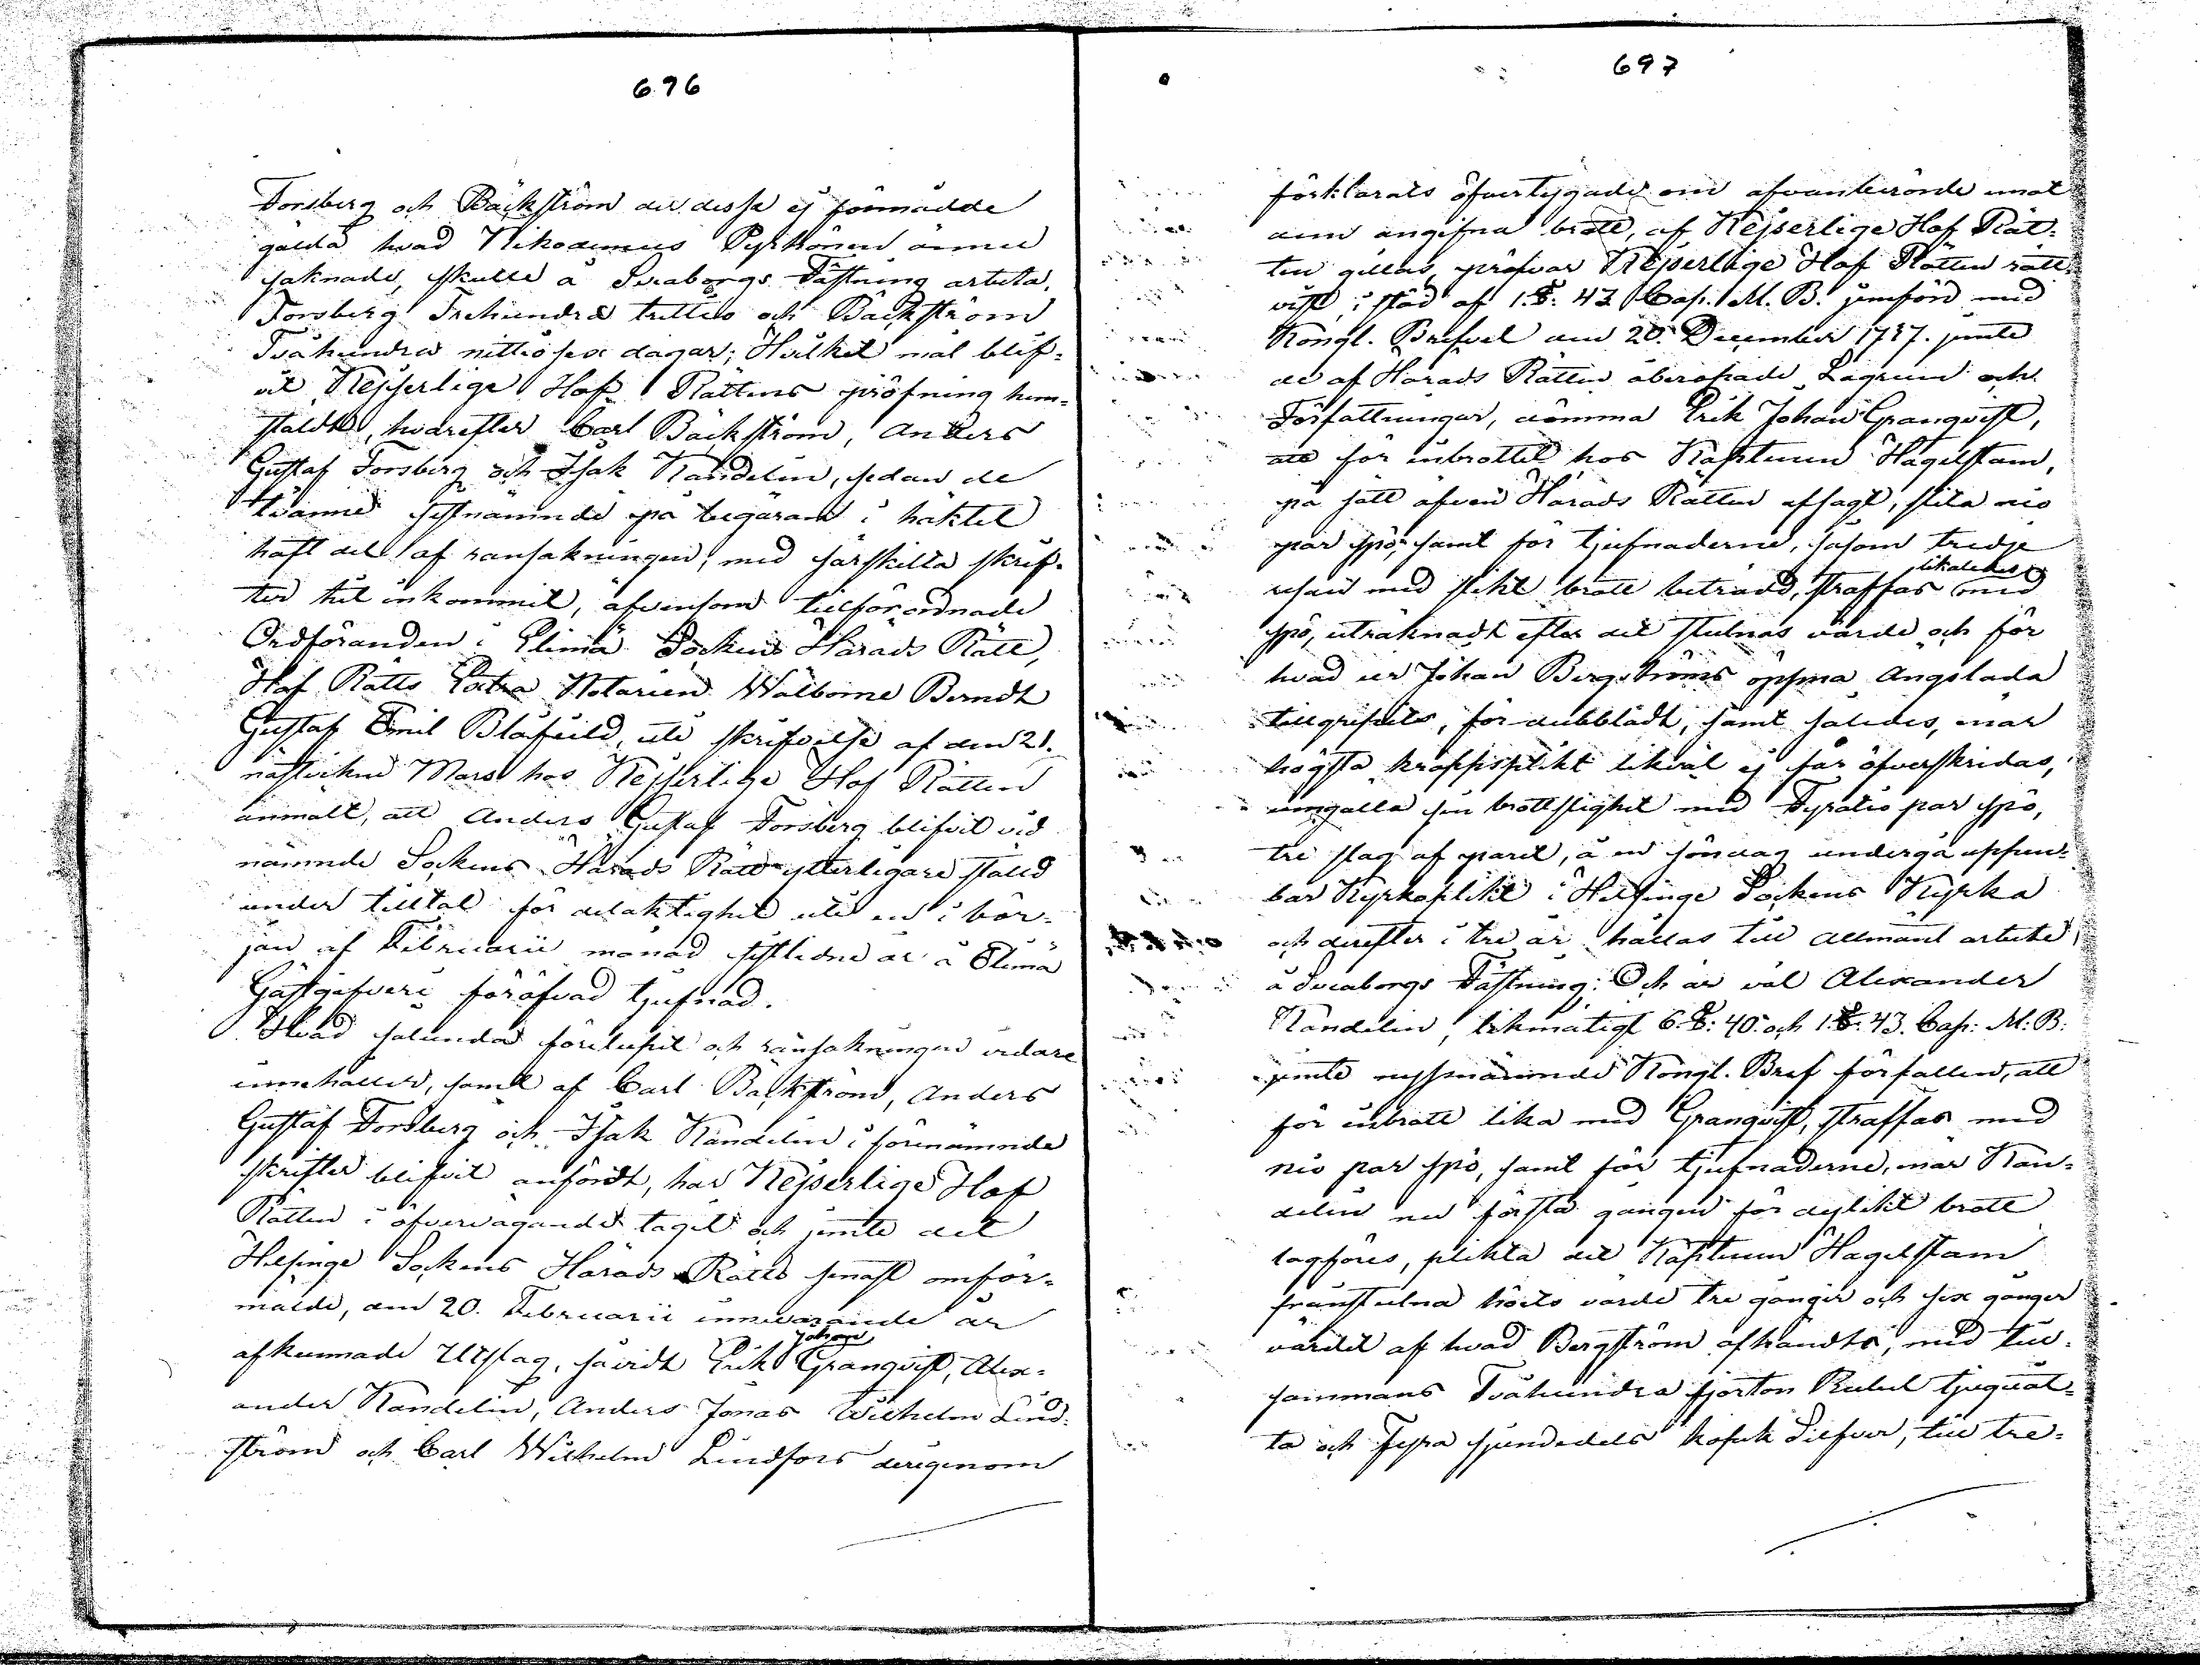 696
Forsberg och Bäckström der desse ej förmådde
gälda hvad Nikodemus Pyrhönen ännu
saknade, skulle å Sveaborgs Fästning arbeta,
Forsberg Trehundra trettio och Bäckström
Tvåhundra nittiosex dagar; Hvilket mål blif-
vit Kejserlige Hof Rättens pröfning hem-
stäldt, hvarefter Carl Bäckström, Anders
Gustaf Forsberg och Isak Kandelin, sedan de
tvänne sistnämnde på begäran i häktet
haft del af ransakningen, med särskilta skrif-
ter hit inkommit, äfvensom tillförordnade
Ordföranden i Elimä Sockens Härads Rätt,
Hof Rätts Extra Notarien Wälborne Berndt
Gustaf Emil Blåfield, uti skrifvelse af den 21.
nästvikne Mars hos Kejserlige Hof Rätten
anmält, att Anders Gustaf Forsberg blifvit vid
nämnde Sockens Härads Rätt ytterligare ställd
under tilltal för delaktighet uti en i bör-
jan af Februarii månad sistlidne år å Elimä
Gästgifveri föröfvad tjufnad.
Hvad sålunda förelupit och ransakningen vidare
innehåller, samt af Carl Bäckström, Anders
Gustaf Forsberg och Isak Kandelin i förenämnde
skrifter blifvit anfördt, har Kejserlige Hof
Rätten i öfvervägande tagit och jemte det
Helsinge Sockens Härads Rätts senast omför-
mälde, den 20. Februarii innevarande år
afkunnade Utslag, såvidt Erik Johan Granqvist, Alex-
ander Kandelin, Anders Jonas Wilhelm Lind-
ström och Carl Wilhelm Lindfors derigenom
697
förklarats öfvertygade om ofvanberörde emot
dem angifna brott, af Kejserlige Hof Rät-
ten gillas, pröfvar Kejserlige Hof Rätten rätt-
vist, i stöd af 1. §: 43 Cap. M. B. jemförd med
Kongl. Brefvet den 20. December 1787. jemte
de af Härads Rätten åberopade Lagrum och
Författningar, dömma Erik Johan Granqvist,
att för inbrottet hos Kaptenen Hagelstam,
på sätt äfven Härads Rätten afsagt, slita nio
par spö, samt för tjufnaderne, såsom tredje
resan med slikt brott beträdd, straffas likaledes med
spö, uträknadt efter det stulnas värde och för
hvad ur Johan Bergströms öppna Ängslada
tillgripits, fördubbladt, samt således, när
högsta kroppsplikt likväl ej får öfverskridas,
umgälla sin brottslighet med Fyratio par spö,
tre slag af paret, å en söndag undergå uppen-
bar Kyrkoplikt i Helsinge Sockens Kyrka
och derefter i tre år hållas till Allmänt arbete
å Sveaborgs Fästning; Och är väl Alexander
Kandelin, likmätigt 6. §: 40. och 1. §: 43. Cap: M: B:
jemte nyssnämnde Kongl. Bref förfallen, att
för inbrott lika med Granqvist, straffas med
nio par spö, samt för tjufnaderne, när Kan-
delin nu första gången för dylikt brott
lagföres, plikta det Kaptenen Hagelstam
frånstulna höets värde tre gånger och sex gånger
värdet af hvad Bergström afhändts, med till-
sammans Tvåhundra fjorton Rubel tjuguåt-
ta och Fyra sjundedels kopek Silfver, till tre-